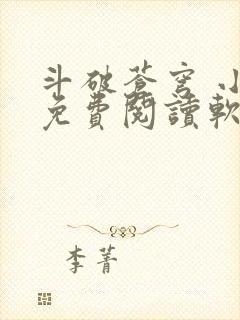 斗破蒼穹 小
免費閱讀軟
李菁